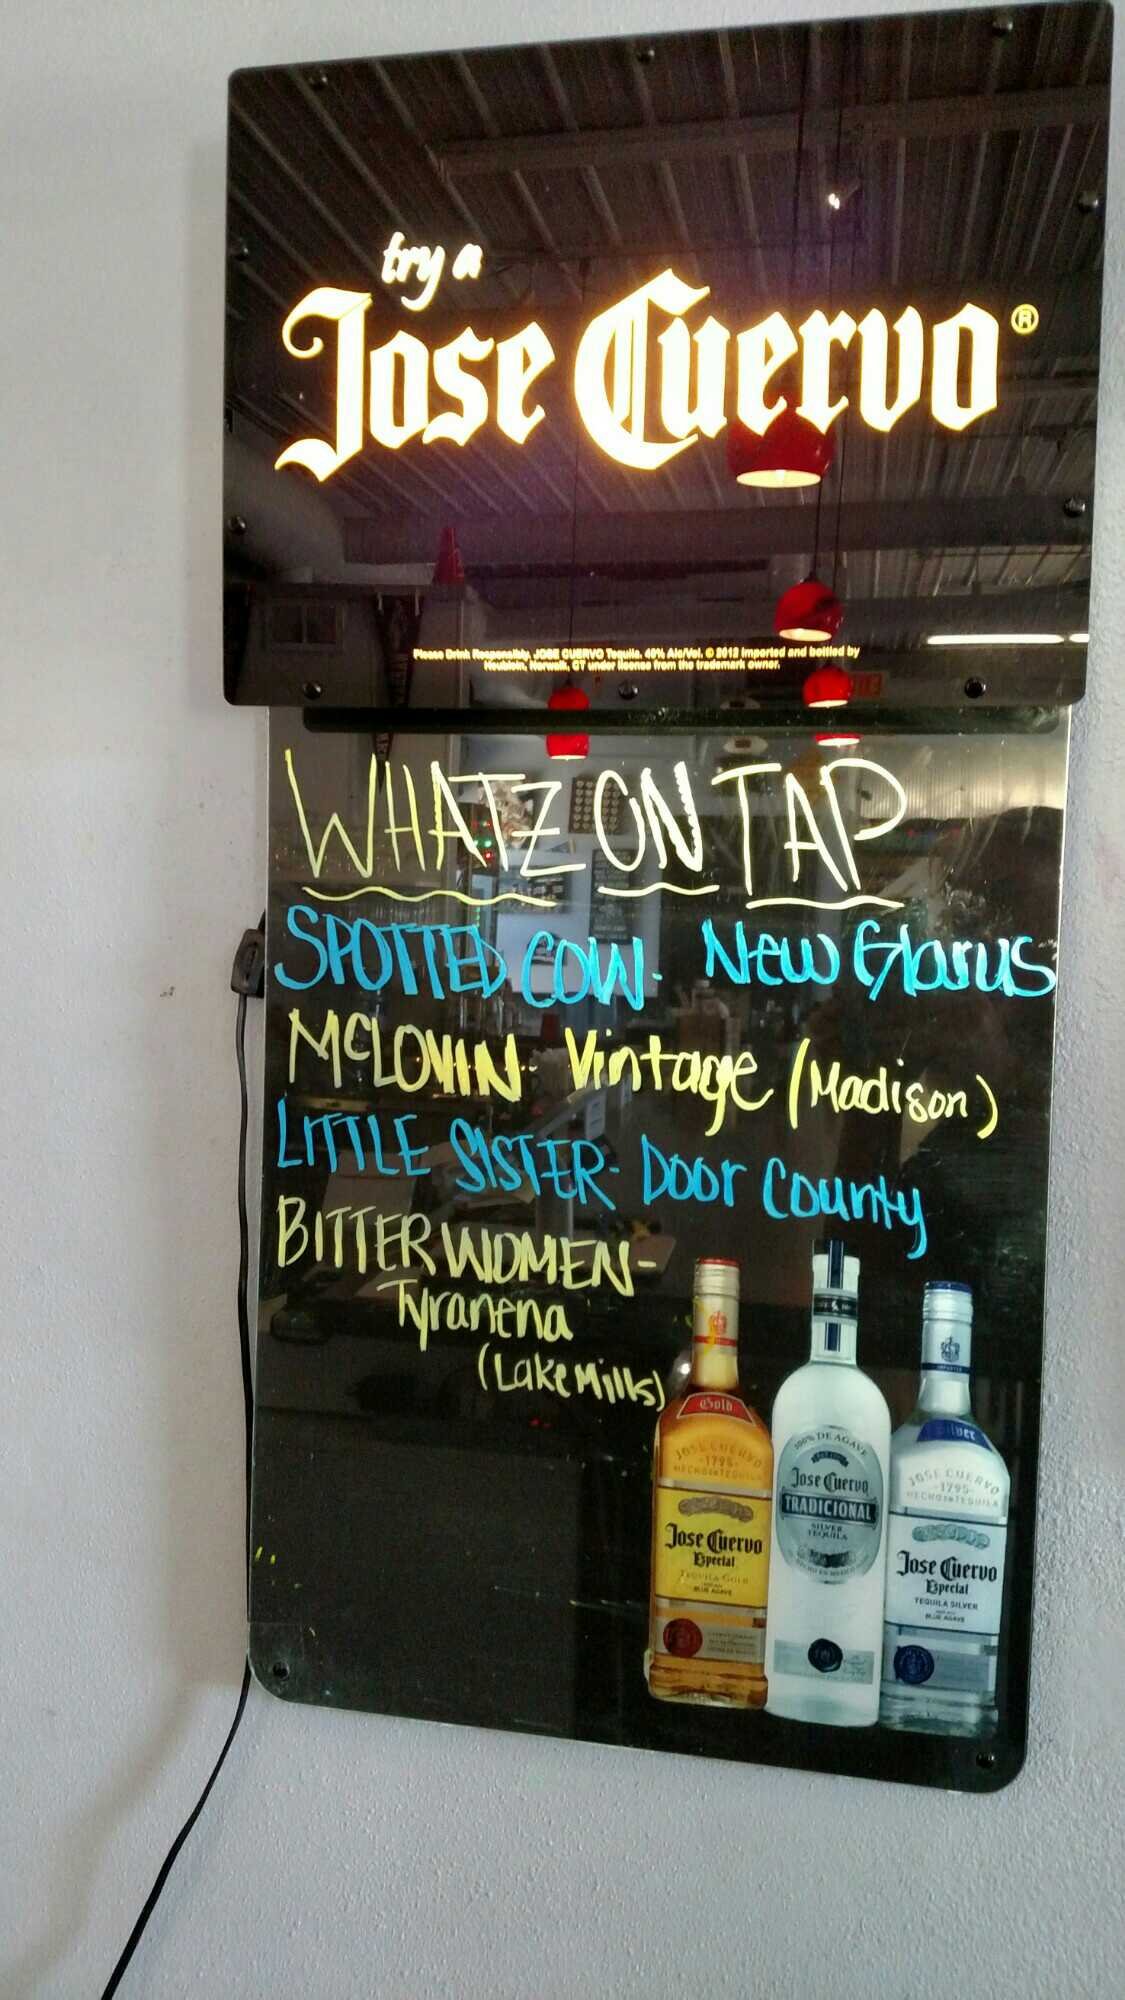 try a
Jose Cuervo®
Please Drink Responsibly, JOSE CUERVO Tequila. 40% Alc/Vol. © 2012 Imported and bottled by
Heublein, Norwalk, CT under license from the trademark owner.
WHATZ ON TAP
SPOTTED COW- New Glarus
MCLOVIN- Vintage (Madison)
LITTLE SISTER- Door County
BITTER WOMEN-
Tyranena
(Lake Mills)
Gold
JOSE CUERVO
-1795-
HECHO EN TEQUILA
Jose Cuervo
Especial
TEQUILA GOLD
BLUE AGAVE
100% DE AGAVE
Jose Cuervo
TRADICIONAL
SILVER
TEQUILA
HECHO EN MEXICO
IMPORTED
Silver
JOSE CUERVO
-1795-
HECHO EN TEQUILA
Jose Cuervo
Especial
TEQUILA SILVER
BLUE AGAVE